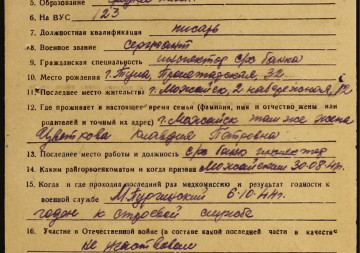 5. Образование
6. На ВУС 123
7. Должностная квалификация писарь
8. Военное звание сержант
9. Гражданская специальность инспектор с/х банка
10. Место рождения г. Тула, Пролетарская, 32.
11. Последнее место жительства г. Можайск, 2 набережная,
12. Где проживает в настоящее время семья (фамилия, имя и отчество жены или
родителей и точный их адрес) г. Можайск там же жена
Цветкова Клавдия Петровна
13. Последнее место работы и должность с/х банк инспектор
14. Каким райгорвоенкоматом и когда призван Можайским 30.08.44г.
15. Когда и где проходил последний раз медкомиссию и результат годности к
военной службе 6.10.44г.
годен к строевой службе
16. Участие в Отечественной войне (в составе какой последней части в качестве
не участвовал